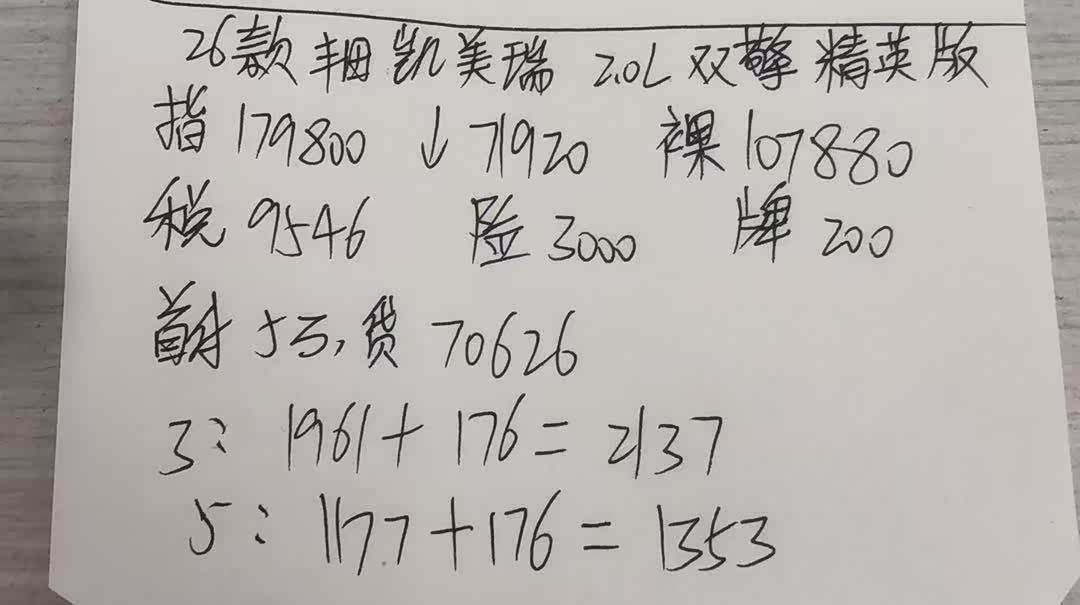 26款丰田凯美瑞 2.0L 双擎精英版
指179800 ↓71920 裸107880
税9546 险3000 牌200
首付5万,贷70626
3: 1961+176=2137
5: 1177+176=1353